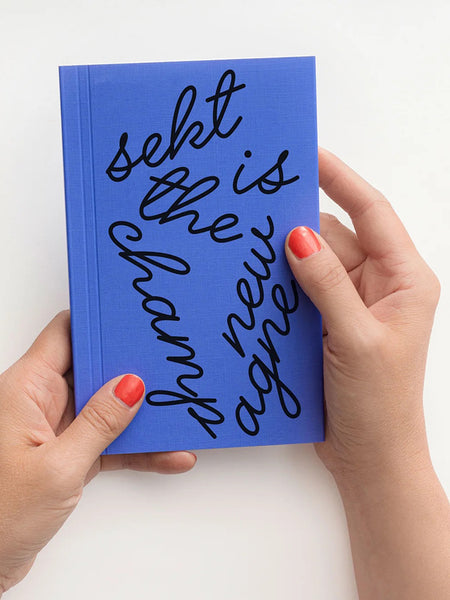 sekt is
the new
champ
agne